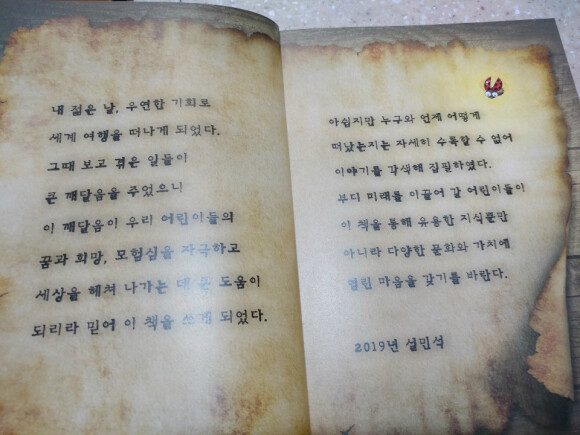 내 젊은 날, 우연한 기회로
세계 여행을 떠나게 되었다.
그때 보고 겪은 일들이
큰 깨달음을 주었으니
이 깨달음이 우리 어린이들의
꿈과 희망, 모험심을 자극하고
세상을 헤쳐 나가는 데 큰 도움이
되리라 믿어 이 책을 쓰게 되었다.
아쉽지만 누구와 언제 어떻게
떠났는지는 자세히 수록할 수 없어
이야기를 각색해 집필하였다.
부디 미래를 이끌어 갈 어린이들이
이 책을 통해 유용한 지식뿐만
아니라 다양한 문화와 가치에
열린 마음을 갖기를 바란다.
2019년 설민석